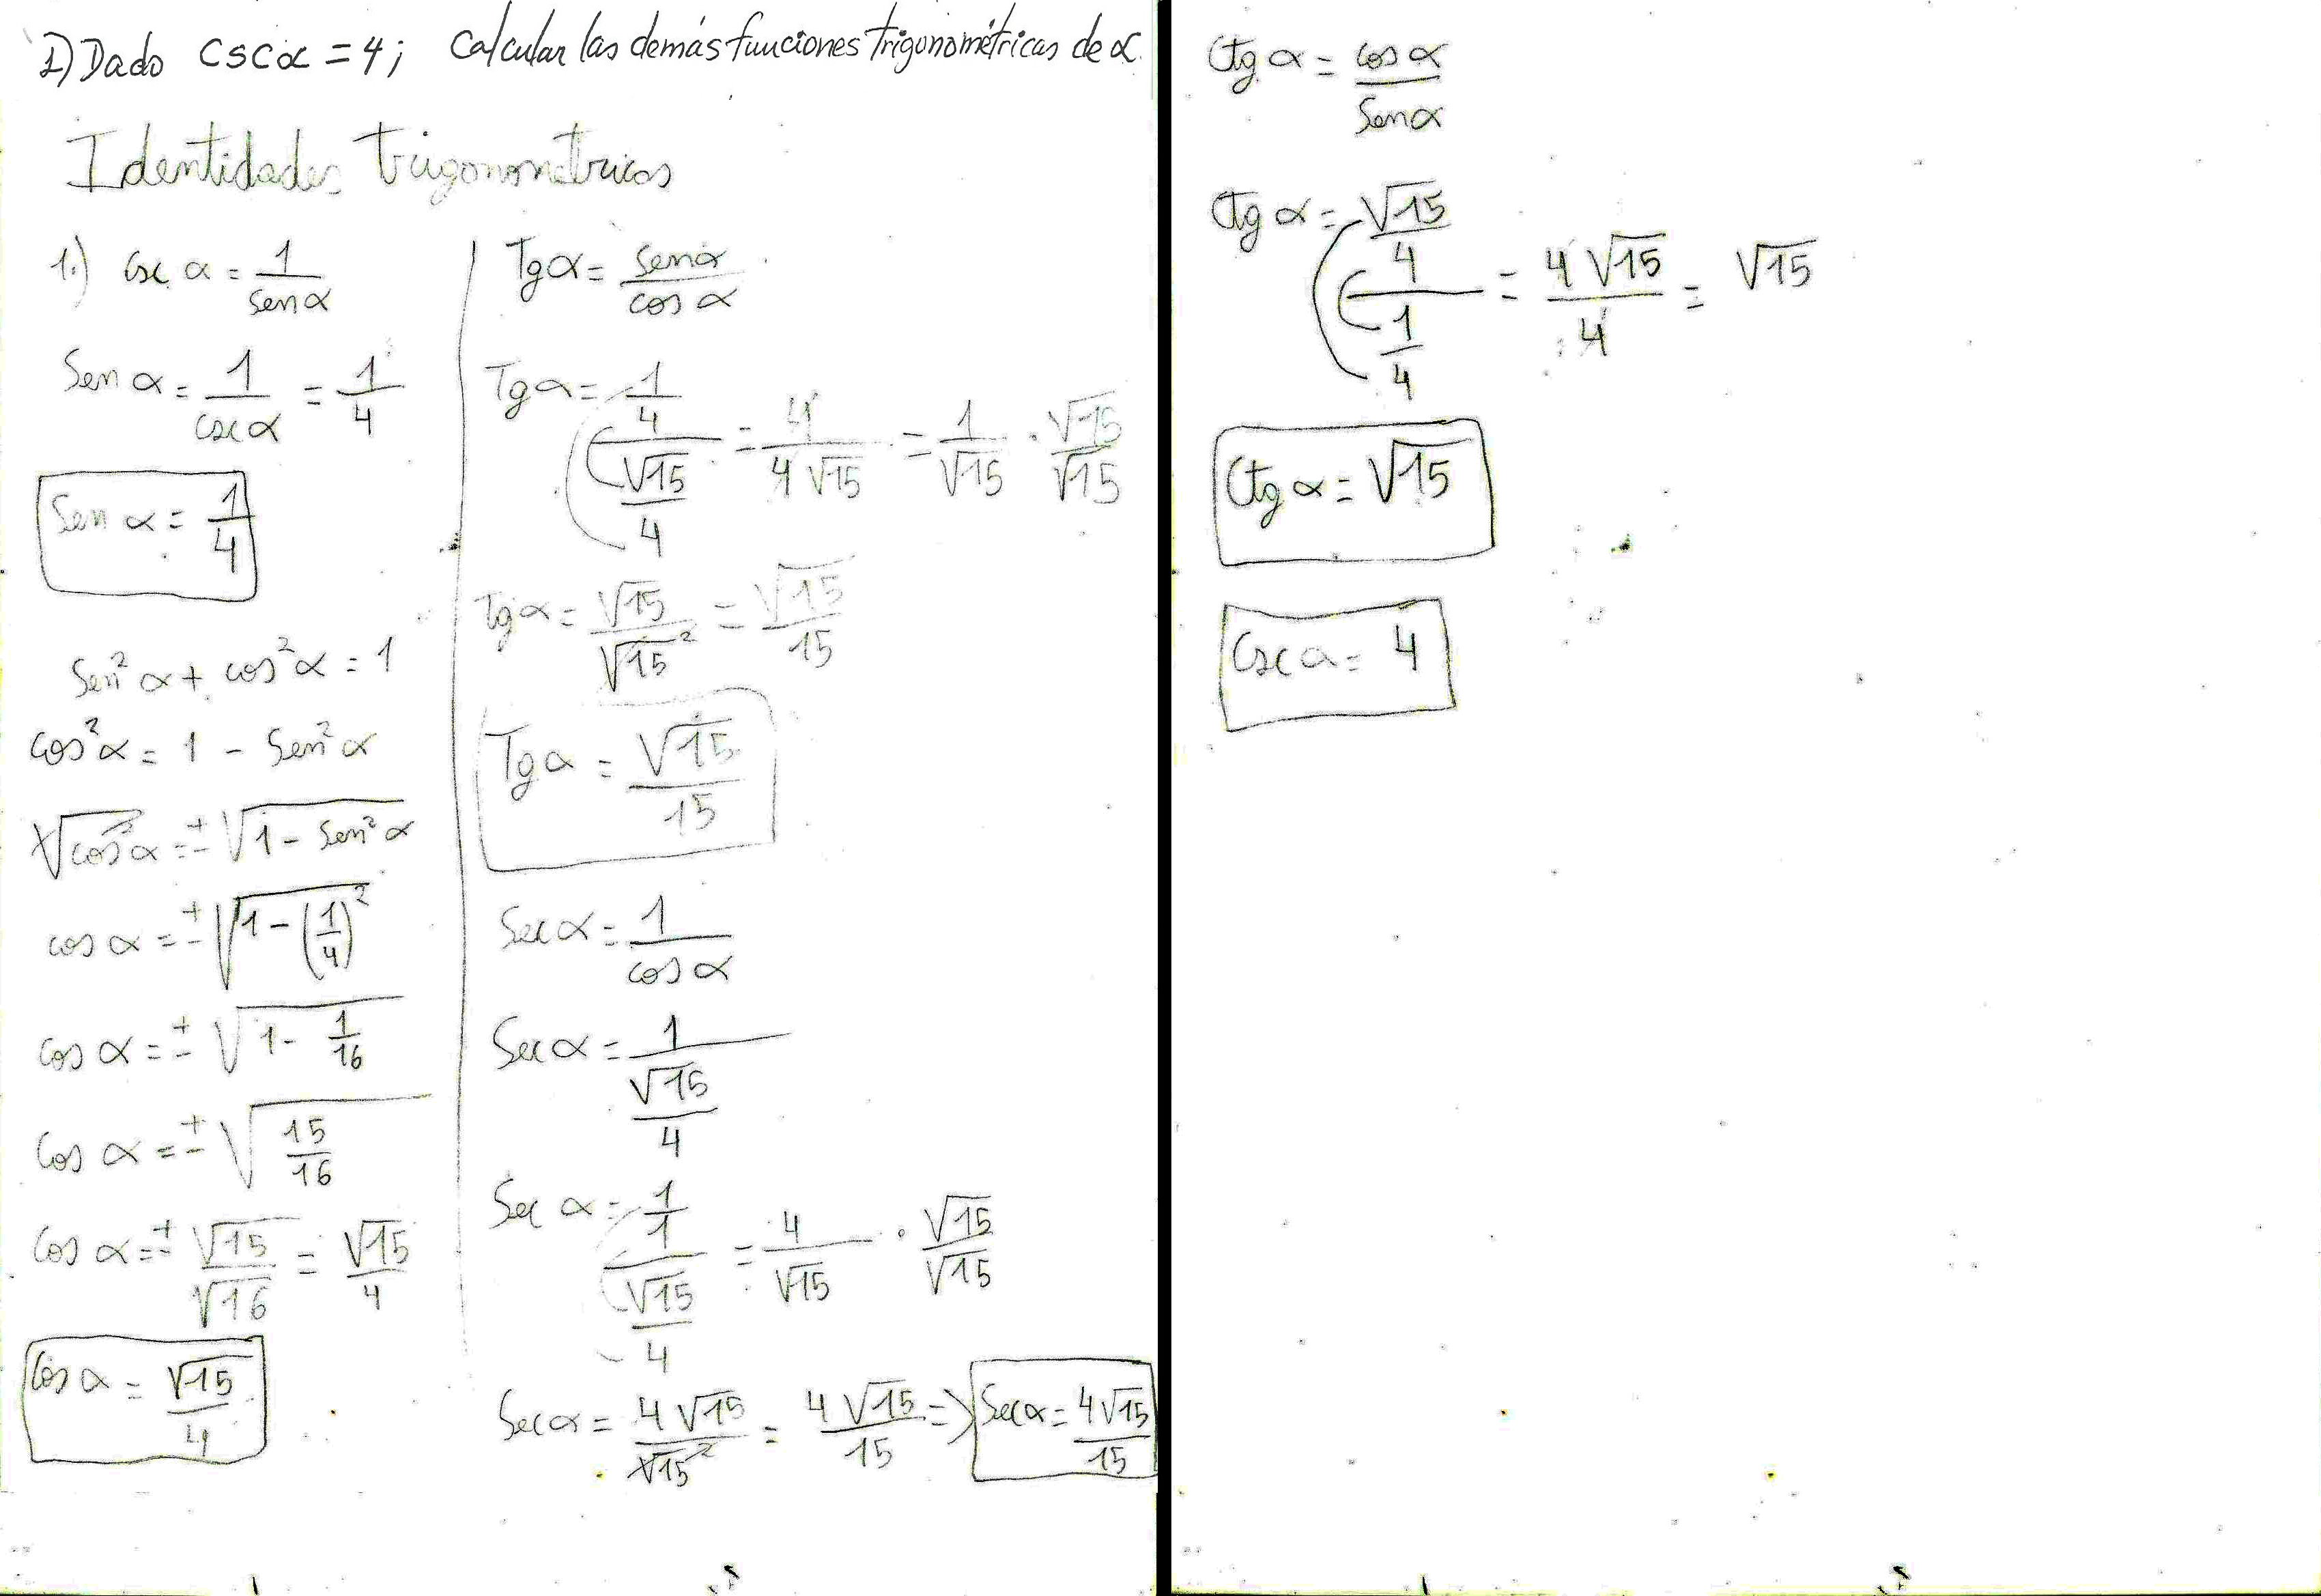 1) Dado csc α = 4; Calcular las demás funciones trigonométricas de α.
Identidades trigonométricas
1.) csc α = 1/sen α
Sen α = 1/csc α = 1/4
Sen α = 1/4
Sen² α + cos² α = 1
cos² α = 1 - Sen² α
√cos² α = ± √(1 - Sen² α)
cos α = ± √(1 - (1/4)²)
cos α = ± √(1 - 1/16)
cos α = ± √(15/16)
cos α = ± √15/√16 = √15/4
cos α = √15/4
Tg α = sen α/cos α
Tg α = (1/4)/(√15/4) = 4/(4√15) = 1/√15 · √15/√15
Tg α = √15/√15² = √15/15
Tg α = √15/15
Sec α = 1/cos α
Sec α = 1/(√15/4)
Sec α = (1/1)/(√15/4) = 4/√15 · √15/√15
Sec α = 4√15/√15² = 4√15/15 => Sec α = 4√15/15
Ctg α = cos α/Sen α
Ctg α = (√15/4)/(1/4) = 4√15/4 = √15
Ctg α = √15
Csc α = 4